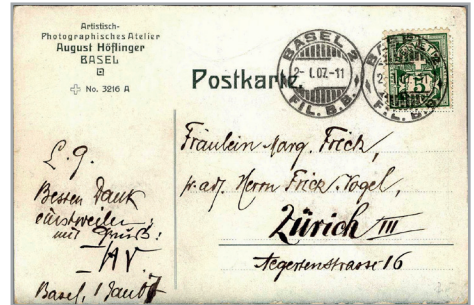 Artistisch-
Photographisches Atelier
August Höflinger
BASEL
No. 3216 A
Postkarte.
BASEL 2
2-I.07.-11
FIL. B.B.
BASEL 2
2-I.07.-11
FIL. B.B.
5
L. G.
Besten Dank
einstweilen;
mit Gruss:
AV
Basel, 1 Jan 07
Fräulein Marg. Frick,
p. adr. Herrn Frick-Vogel,
Zürich III
Aegertenstrasse 16